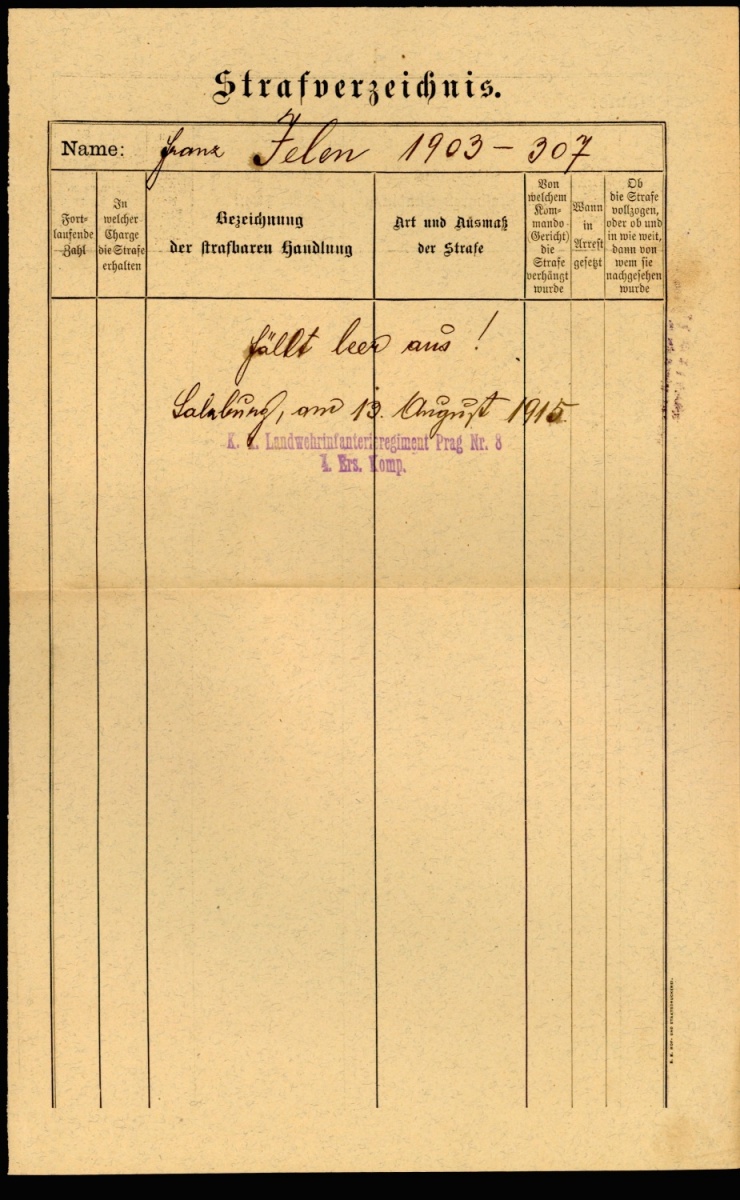 Strafverzeichnis.
Name: Franz Jelen 1903 - 307
Fort-
laufende
Zahl
In
welcher
Charge
die Strafe
erhalten
Bezeichnung
der strafbaren Handlung
Art und Ausmaß
der Strafe
Von
welchem
Kom-
mando
(Gericht)
die
Strafe
verhängt
wurde
Wann
in
Arrest
gesetzt
Ob
die Strafe
vollzogen,
oder ob und
in wie weit,
dann von
wem sie
nachgesehen
wurde
fällt leer aus!
Salzburg, am 13. August 1915
K. k. Landwehrinfanterieregiment Prag Nr. 8
4. Ers. Komp.
K. K. HOF- UND STAATSDRUCKEREI.